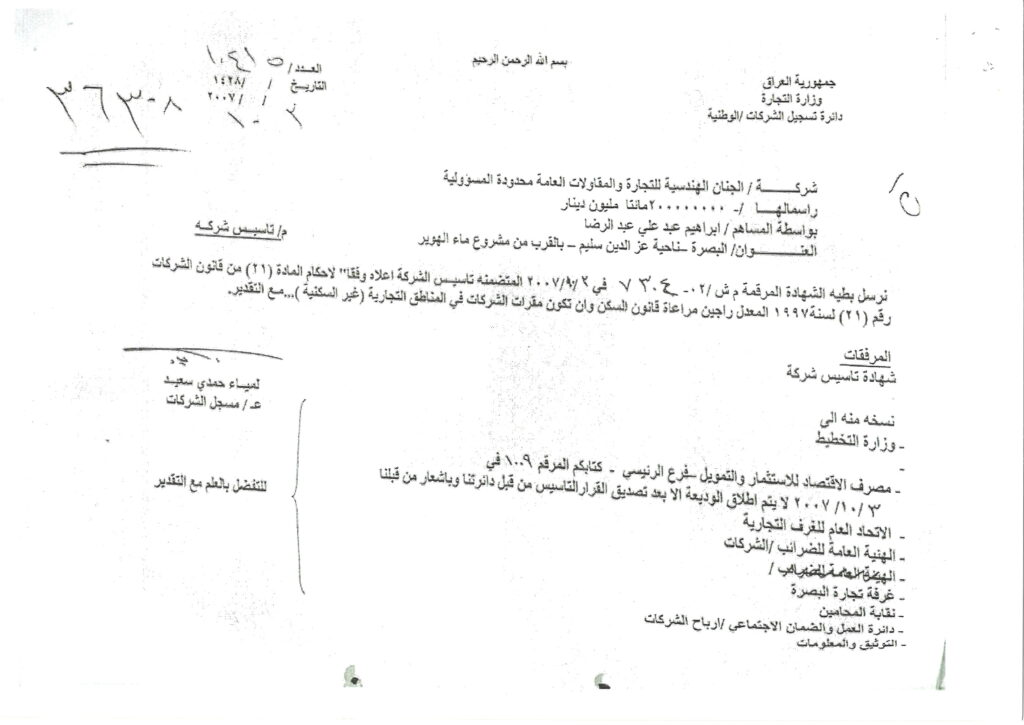 بسم الله الرحمن الرحيم
جمهورية العراق
وزارة التجارة
دائرة تسجيل الشركات /الوطنية
العدد/ ١٠٤١٥
التاريخ / /١٤٢٨
/ /٢٠٠٧
٣٦٣٠٨
شركــــة / الجنان الهندسية للتجارة والمقاولات العامة محدودة المسؤولية
راسمالهـــا /- ٢٠٠٠٠٠٠٠٠ مائتا مليون دينار
بواسطة المساهم / ابراهيم عبد علي عبد الرضا
العنـــــوان/ البصرة –ناحية عز الدين سليم – بالقرب من مشروع ماء الهوير
م/ تاسيس شركه
نرسل بطيه الشهادة المرقمة م ش /٠٢- ٧٣٠٤ في ٢٠٠٧/٩/٢ المتضمنه تاسيس الشركة اعلاه وفقا" لاحكام المادة (٢١) من قانون الشركات
رقم (٢١) لسنة ١٩٩٧ المعدل راجين مراعاة قانون السكن وان تكون مقرات الشركات في المناطق التجارية (غير السكنية )...مع التقدير.
المرفقات
شهادة تاسيس شركة
لميـاء حمدي سعيـد
عـ / مسجل الشركات
نسخه منه الى
- وزارة التخطيط
-
- مصرف الاقتصاد للاستثمار والتمويل –فرع الرئيسي - كتابكم المرقم ١٠٠٩ في
٣ /١٠/ ٢٠٠٧ لا يتم اطلاق الوديعة الا بعد تصديق القرارالتاسيس من قبل دائرتنا وباشعار من قبلنا
للتفضل بالعلم مع التقدير
- الاتحاد العام للغرف التجارية
- الهيئة العامة للضرائب /الشركات
- الهيئة العامة للضرائب /
- غرفة تجارة البصرة
- نقابة المحامين
- دائرة العمل والضمان الاجتماعي /ارباح الشركات
- التوثيق والمعلومات